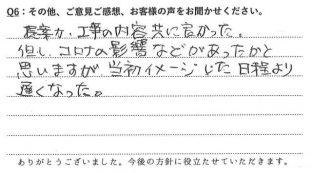 Q6：その他、ご意見ご感想、お客様の声をお聞かせください。
提案か、工事の内容共に良かった。
但し、コロナの影響などがあったかと
思いますが、当初イメージした日程より
遅くなった。
ありがとうございました。今後の方針に役立たせていただきます。